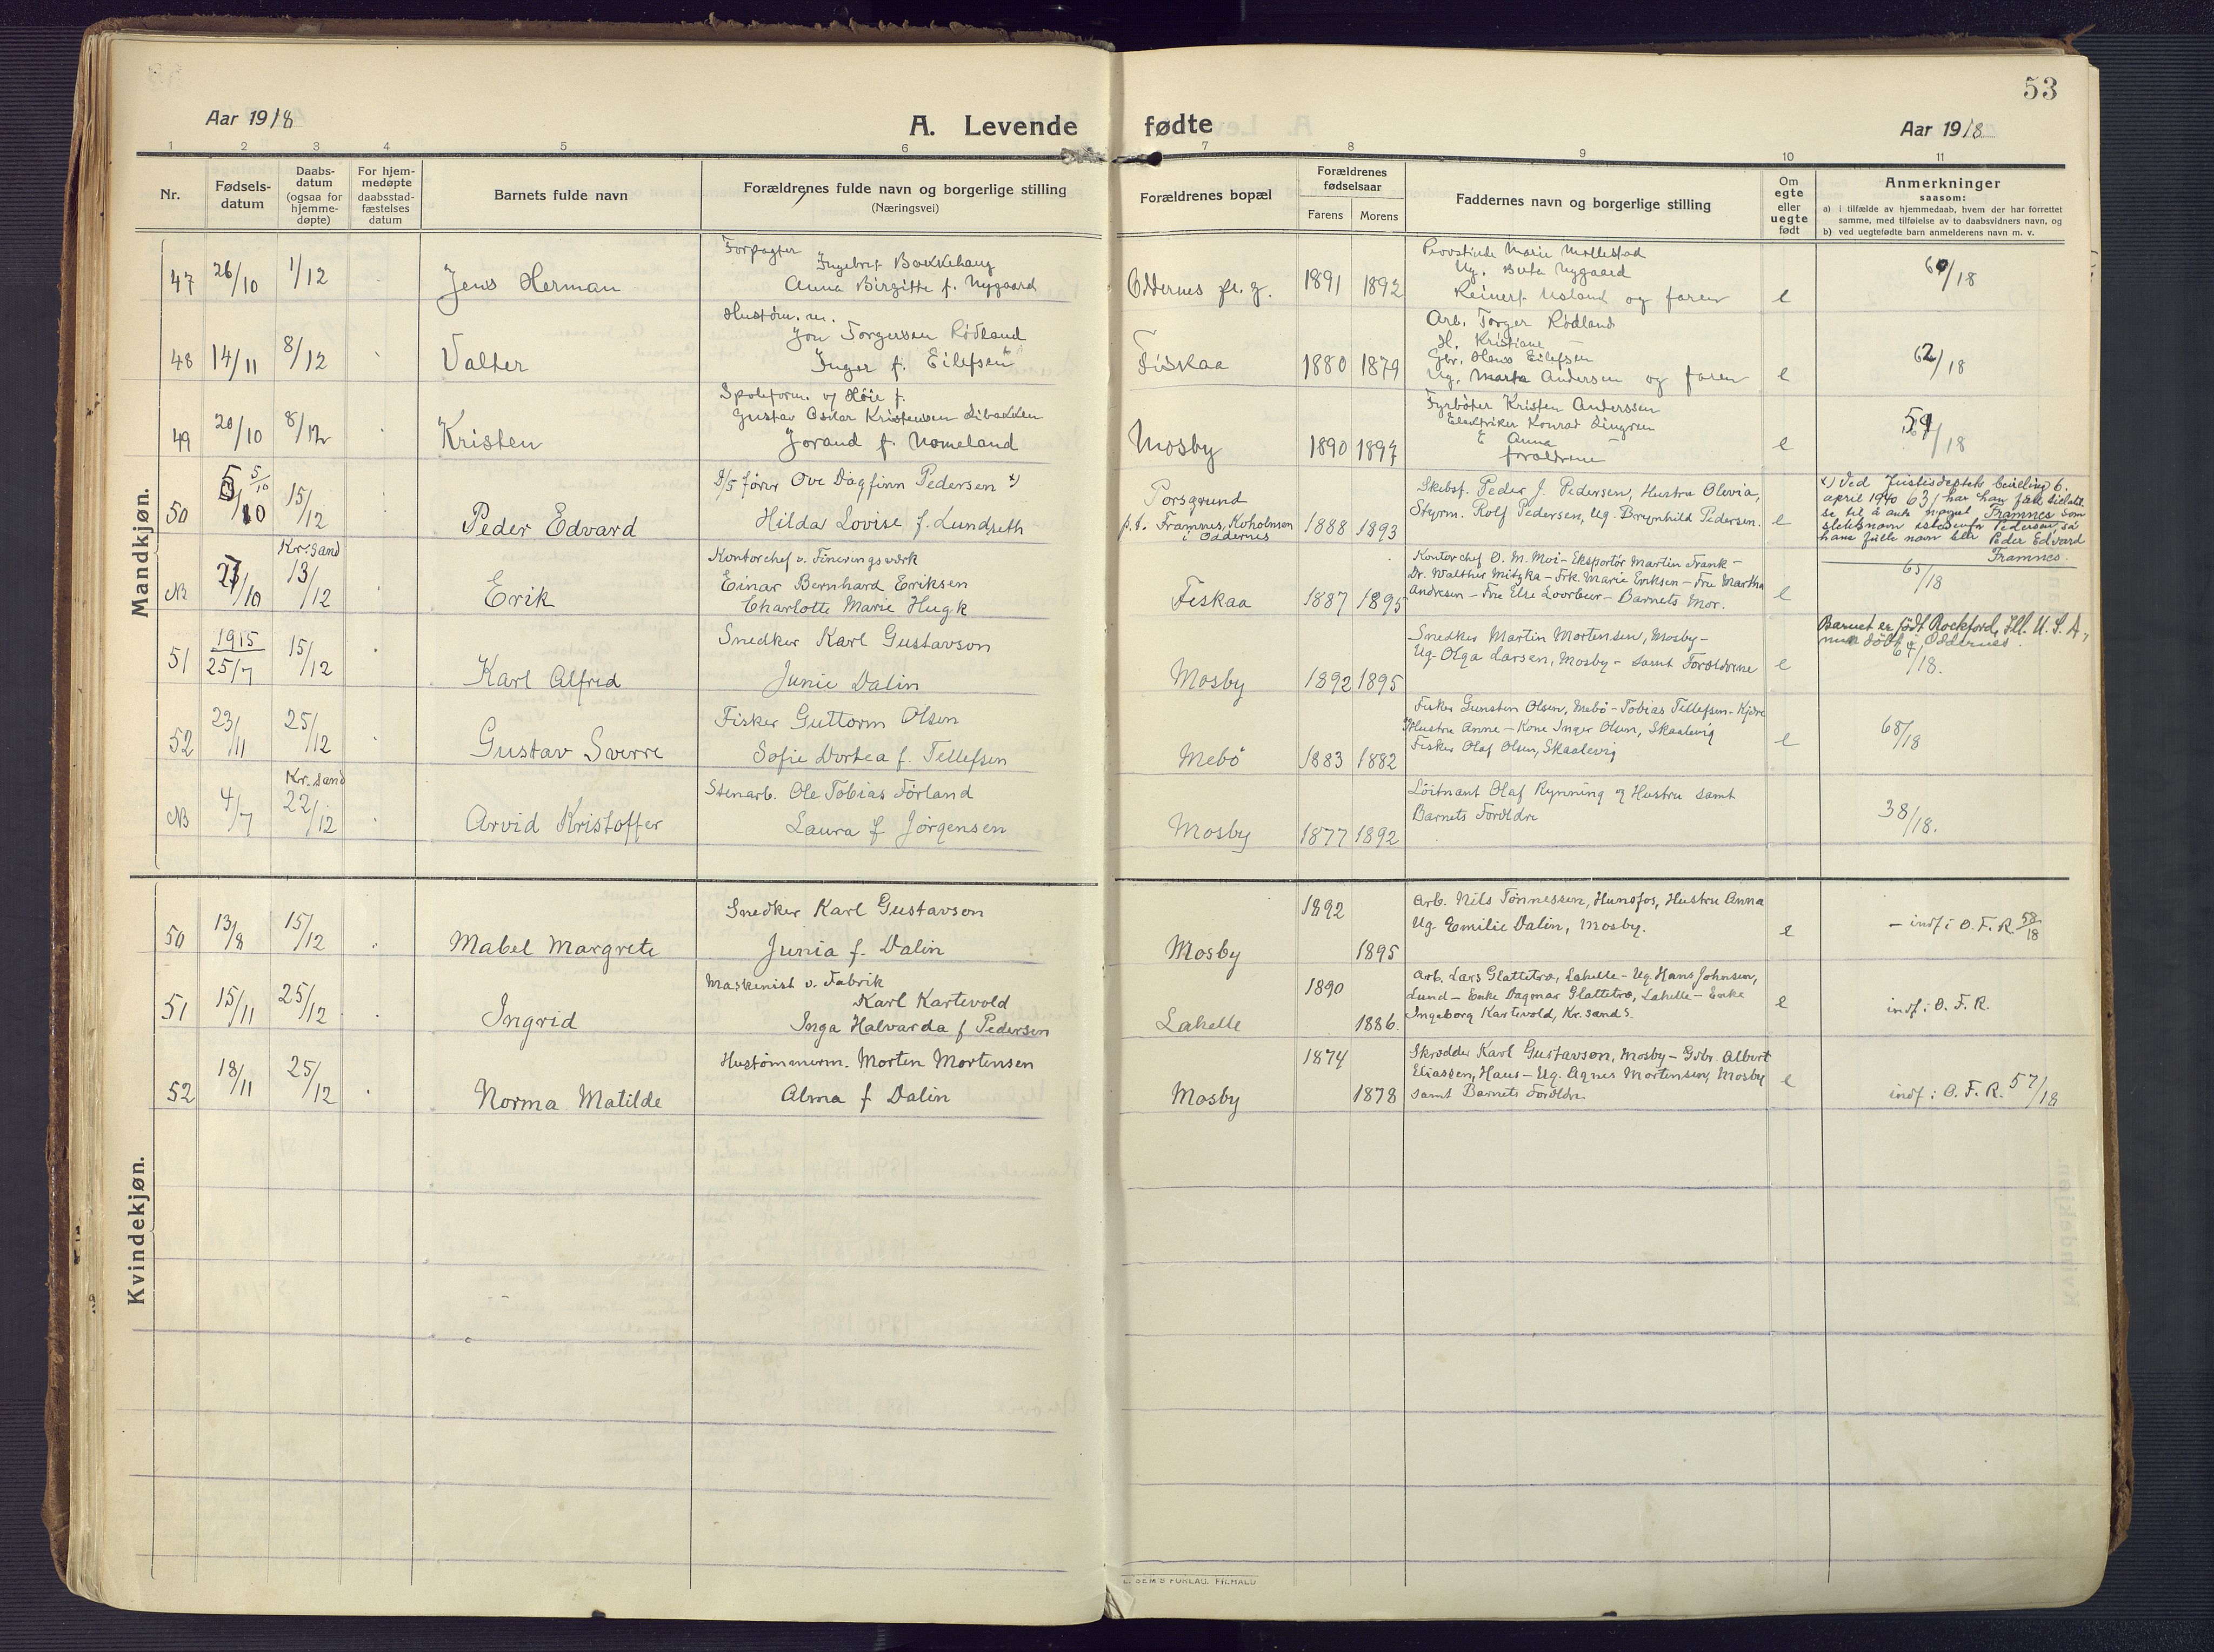 53
Aar 1918
A. Levende fødte
Aar 1918
1 2 3 4 5 6 7 8 9 10 11
Nr.
Fødsels-
datum
Daabs-
datum
(ogsaa for
hjemme-
døpte)
For hjem-
medøpte
daabsstad-
fæstelses
datum
Barnets fulde navn
Forældrenes fulde navn og borgerlige stilling
(Næringsvei)
Forældrenes bopæl
Forældrenes
fødselsaar
Farens Morens
Faddernes navn og borgerlige stilling
Om
egte
eller
uegte
født
Anmerkninger
saasom:
a) i tilfælde av hjemmedaab, hvem der har forrettet
samme, med tilføielse av to daabsvidners navn, og
b) ved uegtefødte barn anmelderens navn m. v.
Mandkjøn.
47 26/10 1/12 Jens Herman
Forpagter
Ingebret Bakkehaug
Anna Birgitte f. Nygaard
Oddernes pr.g. 1891 1892
Provstinde Marie Mollestad
Ug. Berta Nygaard
Reinert Usland og faren
e
/18
48 14/11 8/12 Valter
Hustøm. m.
Jon Torgersen Rødland
Inger f. Eilefsen
Fiskaa 1880 1879
Arb. Torger Rødland
H. Kristiane —
Gbr. Hans Eilefsen
Ug. Marta Andersen og faren
e
62/18
49 20/10 8/12 Kristen
Gustav Oskar Kristensen Libakken
Jorand f. Nomeland
Mosby 1890 1897
Fyrbøter Kristen Anderssen
Elektriker Konrad Lingren
E Anna —
forældrene
e
/18
50 5/10 15/12 Peder Edvard
D/S fører Ove Dagfinn Pedersen x)
Hilda Lovise f. Lundseth
Porsgrund
p.t. Framnes, Koholmen
i Oddernes
1888 1893
Skibsf. Peder J. Pedersen, Hustru Olevia,
Styrm. Rolf Pedersen, Ug. Brynhild Pedersen.
e
x) Ved Justisdeptets bevilling 6.
april 1940 631 har han fått tillatel-
se til å anta navnet Framnes som
slektsnavn istedenfor Pedersen, så
hans fulle navn blir Peder Edvard
Framnes.
NB 27/10 Kr.sand 13/12 Erik
Kontorchef v. Fineringsverk
Einar Bernhard Eriksen
Charlotte Marie Hugk
Fiskaa 1887 1895
Kontorchef O. M. Moi - Eksportør Martin Frank -
Dr. Walther Mitzka - Frk. Marie Eriksen - Fru Martha
Andresen - Fru Else Loorbeer - Barnets Mor.
e
65/18
51 1915 25/7 15/12 Karl Alfrid
Snedker Karl Gustavson
Junie Dalin
Mosby 1892 1895
Snedker Martin Mortensen, Mosby -
Ug. Olga Larsen, Mosby - samt Forældrene
e
Barnet er født Rockford, Ill. U.S.A.,
døbt i Oddernes.
/18.
52 23/11 25/12 Gustav Sverre
Fisker Guttorm Olsen
Sofie Dortea f. Tellefsen
Mebø 1883 1882
Fisker Gunsten Olsen, Mebø - Tobias Tellefsen - Kjøre
Hustru Anne - Kone Inger Olsen, Skaalevig
Fisker Olaf Olsen, Skaalevig
e
68/18
NB 4/7 Kr. sand 22/12 Arvid Kristoffer
Stenarb. Ole Tobias Førland
Laura f Jørgensen
Mosby 1877 1892
Løitnant Olaf Rynning og Hustru samt
Barnets Forældre
38/18.
Kvindekjøn.
50 13/8 15/12 Mabel Margrete
Snedker Karl Gustavson
Junia f. Dalin
Mosby 1892 1895
Arb. Nils Tønnessen, Hunsfos, Hustru Anna
Ug. Emilie Dalin, Mosby.
e
- indf: O. F. R. 58/18
51 15/11 25/12 Ingrid
Maskinist v. Fabrik
Karl Kartevold
Inga Halvarda f Pedersen
Lahelle 1890 1886.
Arb. Lars Glattetræ, Lahelle - Ug. Hans Johnsen,
Lund - Enke Dagmar Glattetræ, Lahelle - Enke
Ingeborg Kartevold, Kr. sand S.
e
indf: O. F. R.
52 18/11 25/12 Norma Matilde
Hustømmerm. Morten Mortensen
Alma f Dalin
Mosby 1874 1878
Skrædder Karl Gustavson, Mosby - Gdbr. Albert
Eliassen, Haus - Ug. Agnes Mortensen, Mosby
samt Barnets Forældre
e
indf: O. F. R. 57/18